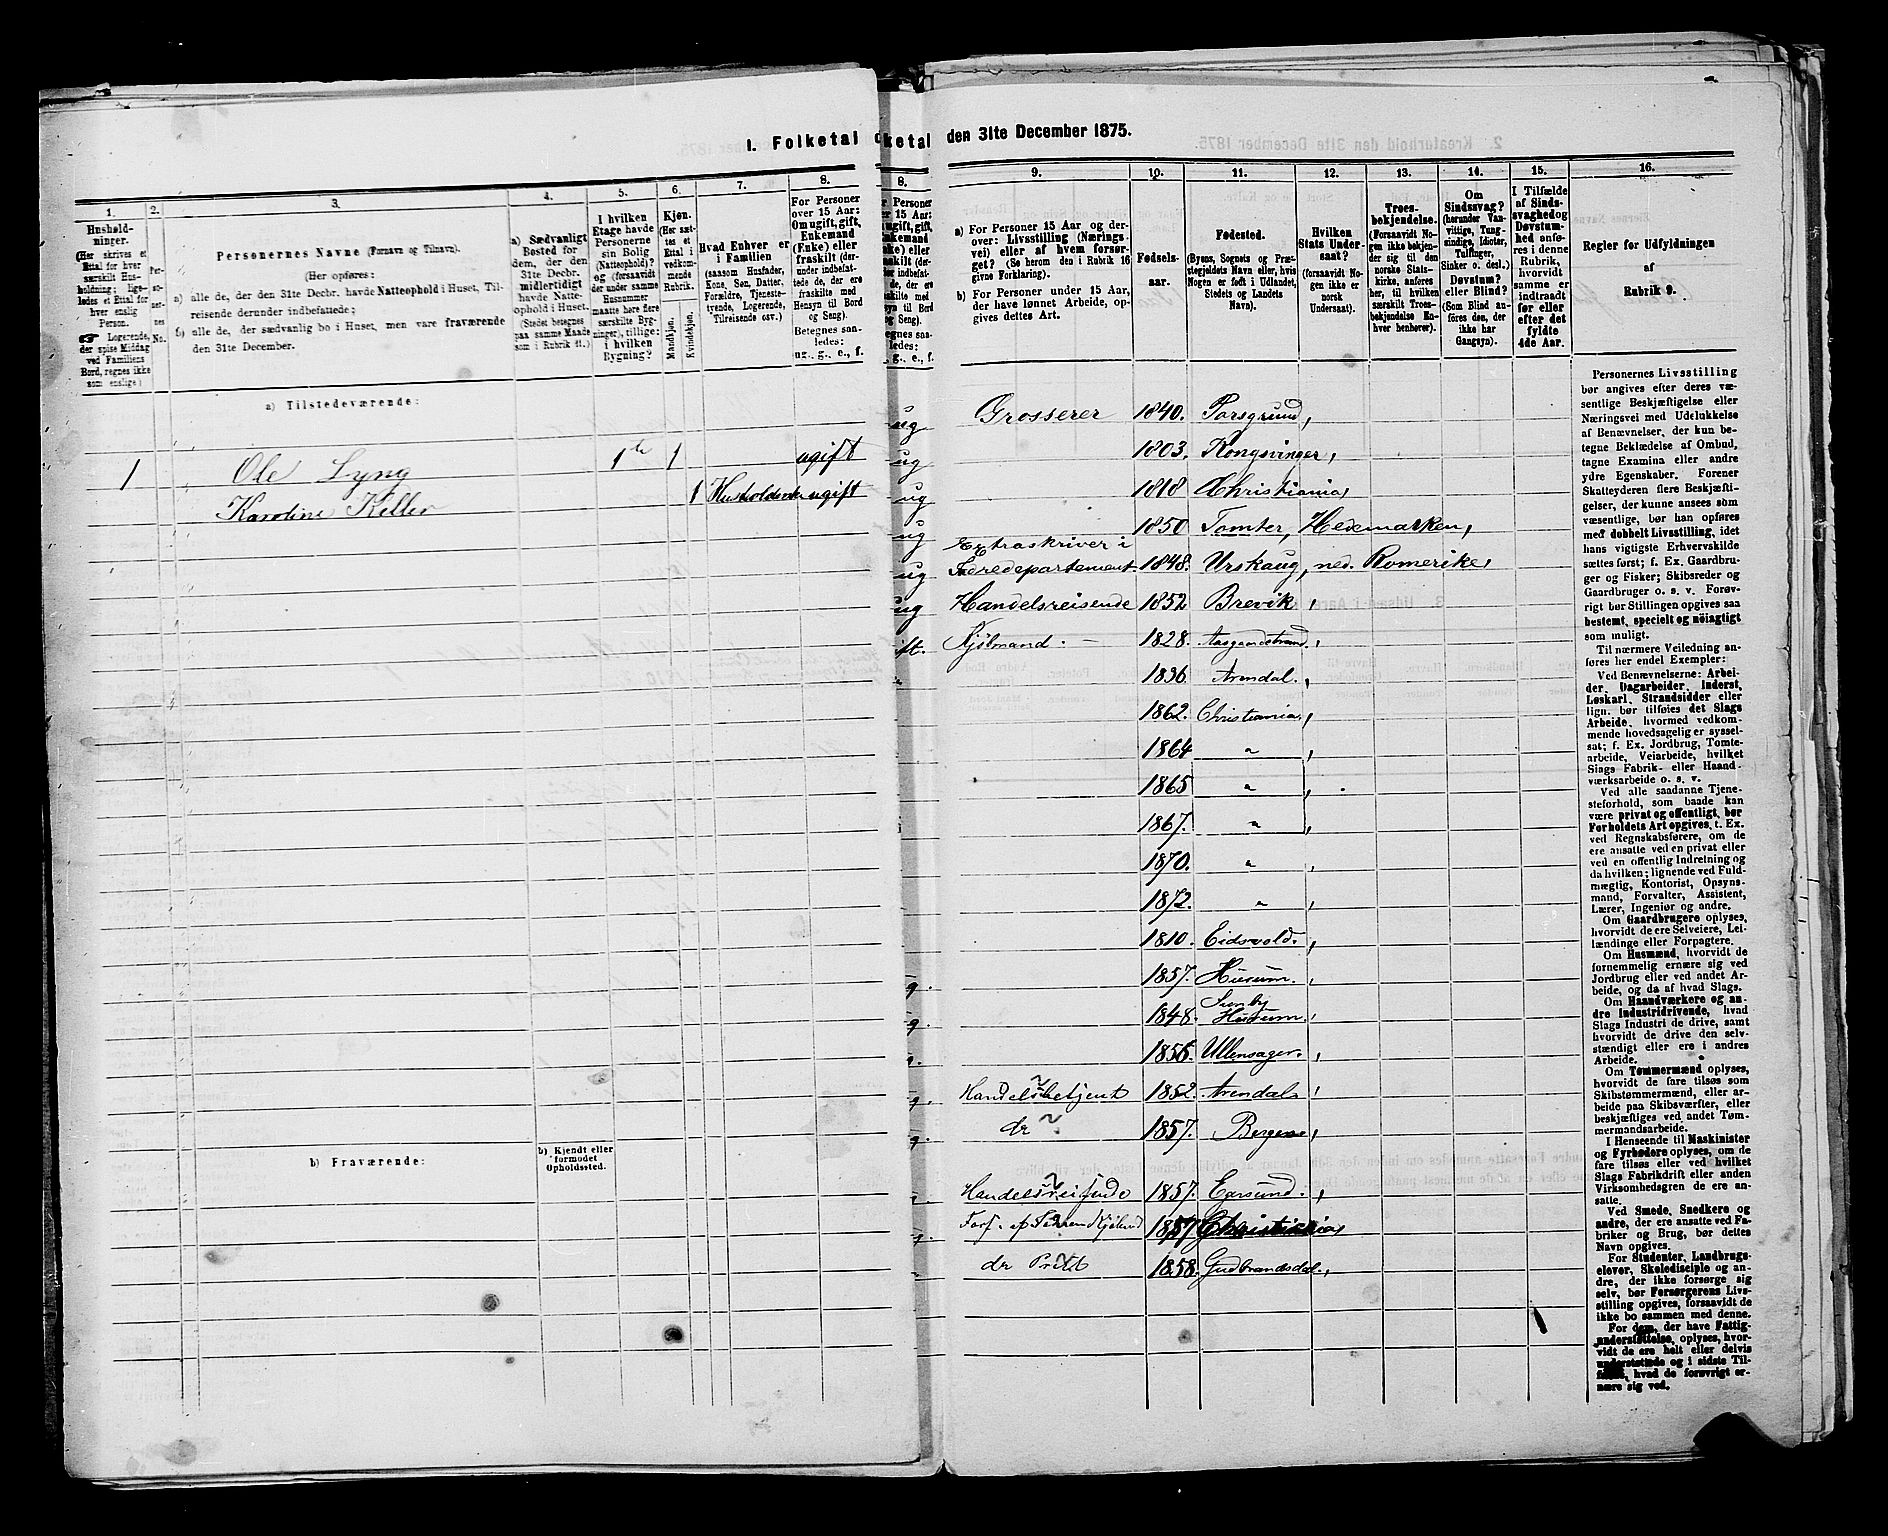 1. Folketal
ketal den 31te December 1875.
1.
2.
3.
4.
5.
6.
7.
8.
Hushold-
ninger.
(Her skrives et
Ettal for hver
særskilt Hus-
holdning; lige-
ledes et Ettal for
hver enslig
Person.
☞ Logerende,
der spise Middag
ved Familiens
Bord, regnes ikke
som enslige.)
Per-
so-
ner-
nes
No.
Personernes Navne (Fornavn og Tilnavn).
(Her opføres:
a) alle de, der den 31te Decbr. havde Natteophold i Huset, Til-
reisende derunder indbefattede;
b) alle de, der sædvanlig bo i Huset, men vare fraværende
den 31te December.
a) Sædvanligt
Bosted for
dem, der den
31te Decbr.
midlertidigt
havde Natte-
ophold i Huset.
(Stedet betegnes
paa samme Maade
som i Rubrik 11.)
I hvilken
Etage havde
Personerne
sin Bolig
(Natteophold)?
og (forsaavidt
der under samme
Husnummer
maatte høre flere
særskilte Byg-
ninger), tillige:
i hvilken
Bygning?
Kjøn.
(Her sæt-
tes et
Ettal i
vedkom-
mende
Rubrik.
Mandkjøn.
Kvindekjøn.
Hvad Enhver er
i Familien
(saasom Husfader,
Kone, Søn, Datter,
Forældre, Tjeneste-
tyende, Logerende,
Tilreisende osv.)
For Personer
over 15 Aar:
Om ugift, gift,
Enkemand
(Enke) eller
fraskilt (der-
under indbefat-
tede de, der ere
fraskilte med
Hensyn til Bord
og Seng).
Betegnes saa-
ledes:
ug., g., e., f.
a) Tilstedeværende:
1 Ole Lyng 1te 1 ugift
Karoline Keller 1 ugift
b) Fraværende:
b) Kjendt eller
formodet
Opholdssted.
8.
9.
10.
11.
12.
13.
14.
15.
16.
a) For Personer 15 Aar og der-
over: Livsstilling (Nærings-
vei) eller af hvem forsør-
get? (Se herom den i Rubrik 16
givne Forklaring).
b) For Personer under 15 Aar,
der have lønnet Arbeide, op-
gives dettes Art.
Fødsels-
aar.
Fødested.
(Byens, Sognets og Præ-
stegjeldets Navn eller, hvis
Nogen er født i Udlandet,
Stedets og Landets
Navn).
Hvilken
Stats Under-
saat?
(forsaavidt No-
gen ikke er
norsk
Undersaat).
Troes-
bekjendelse.
(Forsaavidt No-
gen ikke bekjen-
der sig til den
norske Stats-
kirke, anføres
her, til hvilken
særskilt Troes-
bekjendelse En-
hver henhører).
Om
Sindssvag?
(herunder Van-
vittige, Tung-
sindige, Idioter,
Tullinger,
Sinker o. desl.)
Døvstum?
eller Blind?
(Som Blind an-
føres den, der
ikke har
Gangsyn).
I Tilfælde
af Sinds-
svaghed og
Døvstum-
hed anfø-
res i denne
Rubrik,
hvorvidt
samme er
indtraadt
før eller
efter det
fyldte
4de Aar.
Regler for Udfyldningen
af
Rubrik 9.
ug Grosserer 1840. Porsgrund,
ug 1803. Kongsvinger,
ug 1818 Christiania,
ug 1850 Tomter, Hedemarken,
Extraskriver i
ug 1848. Urskaug, ned. Romerike,
ug Handelsreisende 1852 Brevik,
ift. 1828. Aasgaardstrand,
1836 Arendal.,
1862. Christiania,
1864 "
1865 "
1867. "
1870. "
1872. "
1810. Eidsvold.,
g. 1857. Hurum.,
g. 1848. Hurum.
g. Ullensager.,
g. Handelsbetjent 1852. Arendal,
g. do 1857. Bergen,
Handelsreisende 1857. Egersund.,
g. Christiania,
do 1858. Gudbrandsdal.,
Personernes Livsstilling
bør angives efter deres væ-
sentlige Beskjæftigelse eller
Næringsvei med Udelukkelse
af Benævnelser, der kun be-
tegne Beklædelse af Ombud,
tagne Examina eller andre
ydre Egenskaber. Forener
Skatteyderen flere Beskjæfti-
gelser, der kunne ansees som
væsentlige, bør han opføres
med dobbelt Livsstilling, idet
hans vigtigste Erhvervskilde
sættes først; f. Ex. Gaardbru-
ger og Fisker; Skibsreder og
Gaardbruger o. s. v. Forøv-
rigt bør Stillingen opgives saa
bestemt, specielt og nøiagtigt
som muligt.
Til nærmere Veiledning an-
føres her endel Exempler:
Ved Benævnelserne: Arbei-
der, Dagarbeider, Inderst,
Løskarl, Strandsidder eller
lign. bør tilføies det Slags
Arbeide, hvormed vedkom-
mende hovedsagelig er syssel-
sat; f. Ex. Jordbrug, Tomte-
arbeide, Veiarbeide, hvilket
Slags Fabrik- eller Haand-
værksarbeide o. s. v.
Ved alle saadanne Tjene-
steforhold, som baade kan
være privat og offentligt, bør
Forholdets Art opgives, t. Ex.
ved Regnskabsførere, om de
ere ansatte ved en privat eller
ved en offentlig Indretning og
da hvilken; lignende ved Fuld-
mægtig, Kontorist, Opsyns-
mand, Forvalter, Assistent,
Lærer, Ingeniør og andre.
Om Gaardbrugere oplyses,
hvorvidt de ere Selveiere, Lei-
lændinge eller Forpagtere.
Om Husmænd, hvorvidt de
fornemmelig ernære sig ved
Jordbrug eller ved andet Ar-
beide, og da af hvad Slags.
Om Haandværkere og an-
dre Industridrivende, hvad
Slags Industri de drive, samt
hvorvidt de drive den selv-
stændigt eller ere i andres
Arbeide.
Om Tømmermænd oplyses,
hvorvidt de fare tilsøs som
Skibstømmermænd, eller ar-
beide paa Skibsværfter, eller
beskjæftiges ved andet Tøm-
mermandsarbeide.
I Henseende til Maskinister
og Fyrbødere oplyses, om de
fare tilsøs eller ved hvilket
Slags Fabrikdrift eller anden
Virksomhedsgren de ere an-
satte.
Ved Smede, Snedkere og
andre, der ere ansatte ved Fa-
briker og Brug, bør dettes
Navn opgives.
For Studenter, Landbrugs-
elever, Skoledisciple og an-
dre, der ikke forsørge sig
selv, bør Forsørgerens Livs-
stilling opgives, forsaavidt de
ikke bo sammen med denne.
For dem, der have Fattig-
understøttelse, oplyses, hvor-
vidt de ere helt eller delvis
understøttede og i sidste Til-
fælde, hvad de forøvrigt er-
nære sig ved.